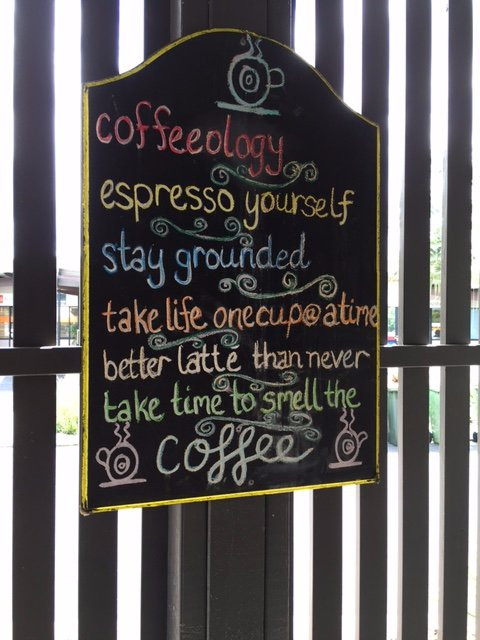 coffeeology
espresso yourself
stay grounded
take life one cup @ a time
better latte than never
take time to smell the
coffee